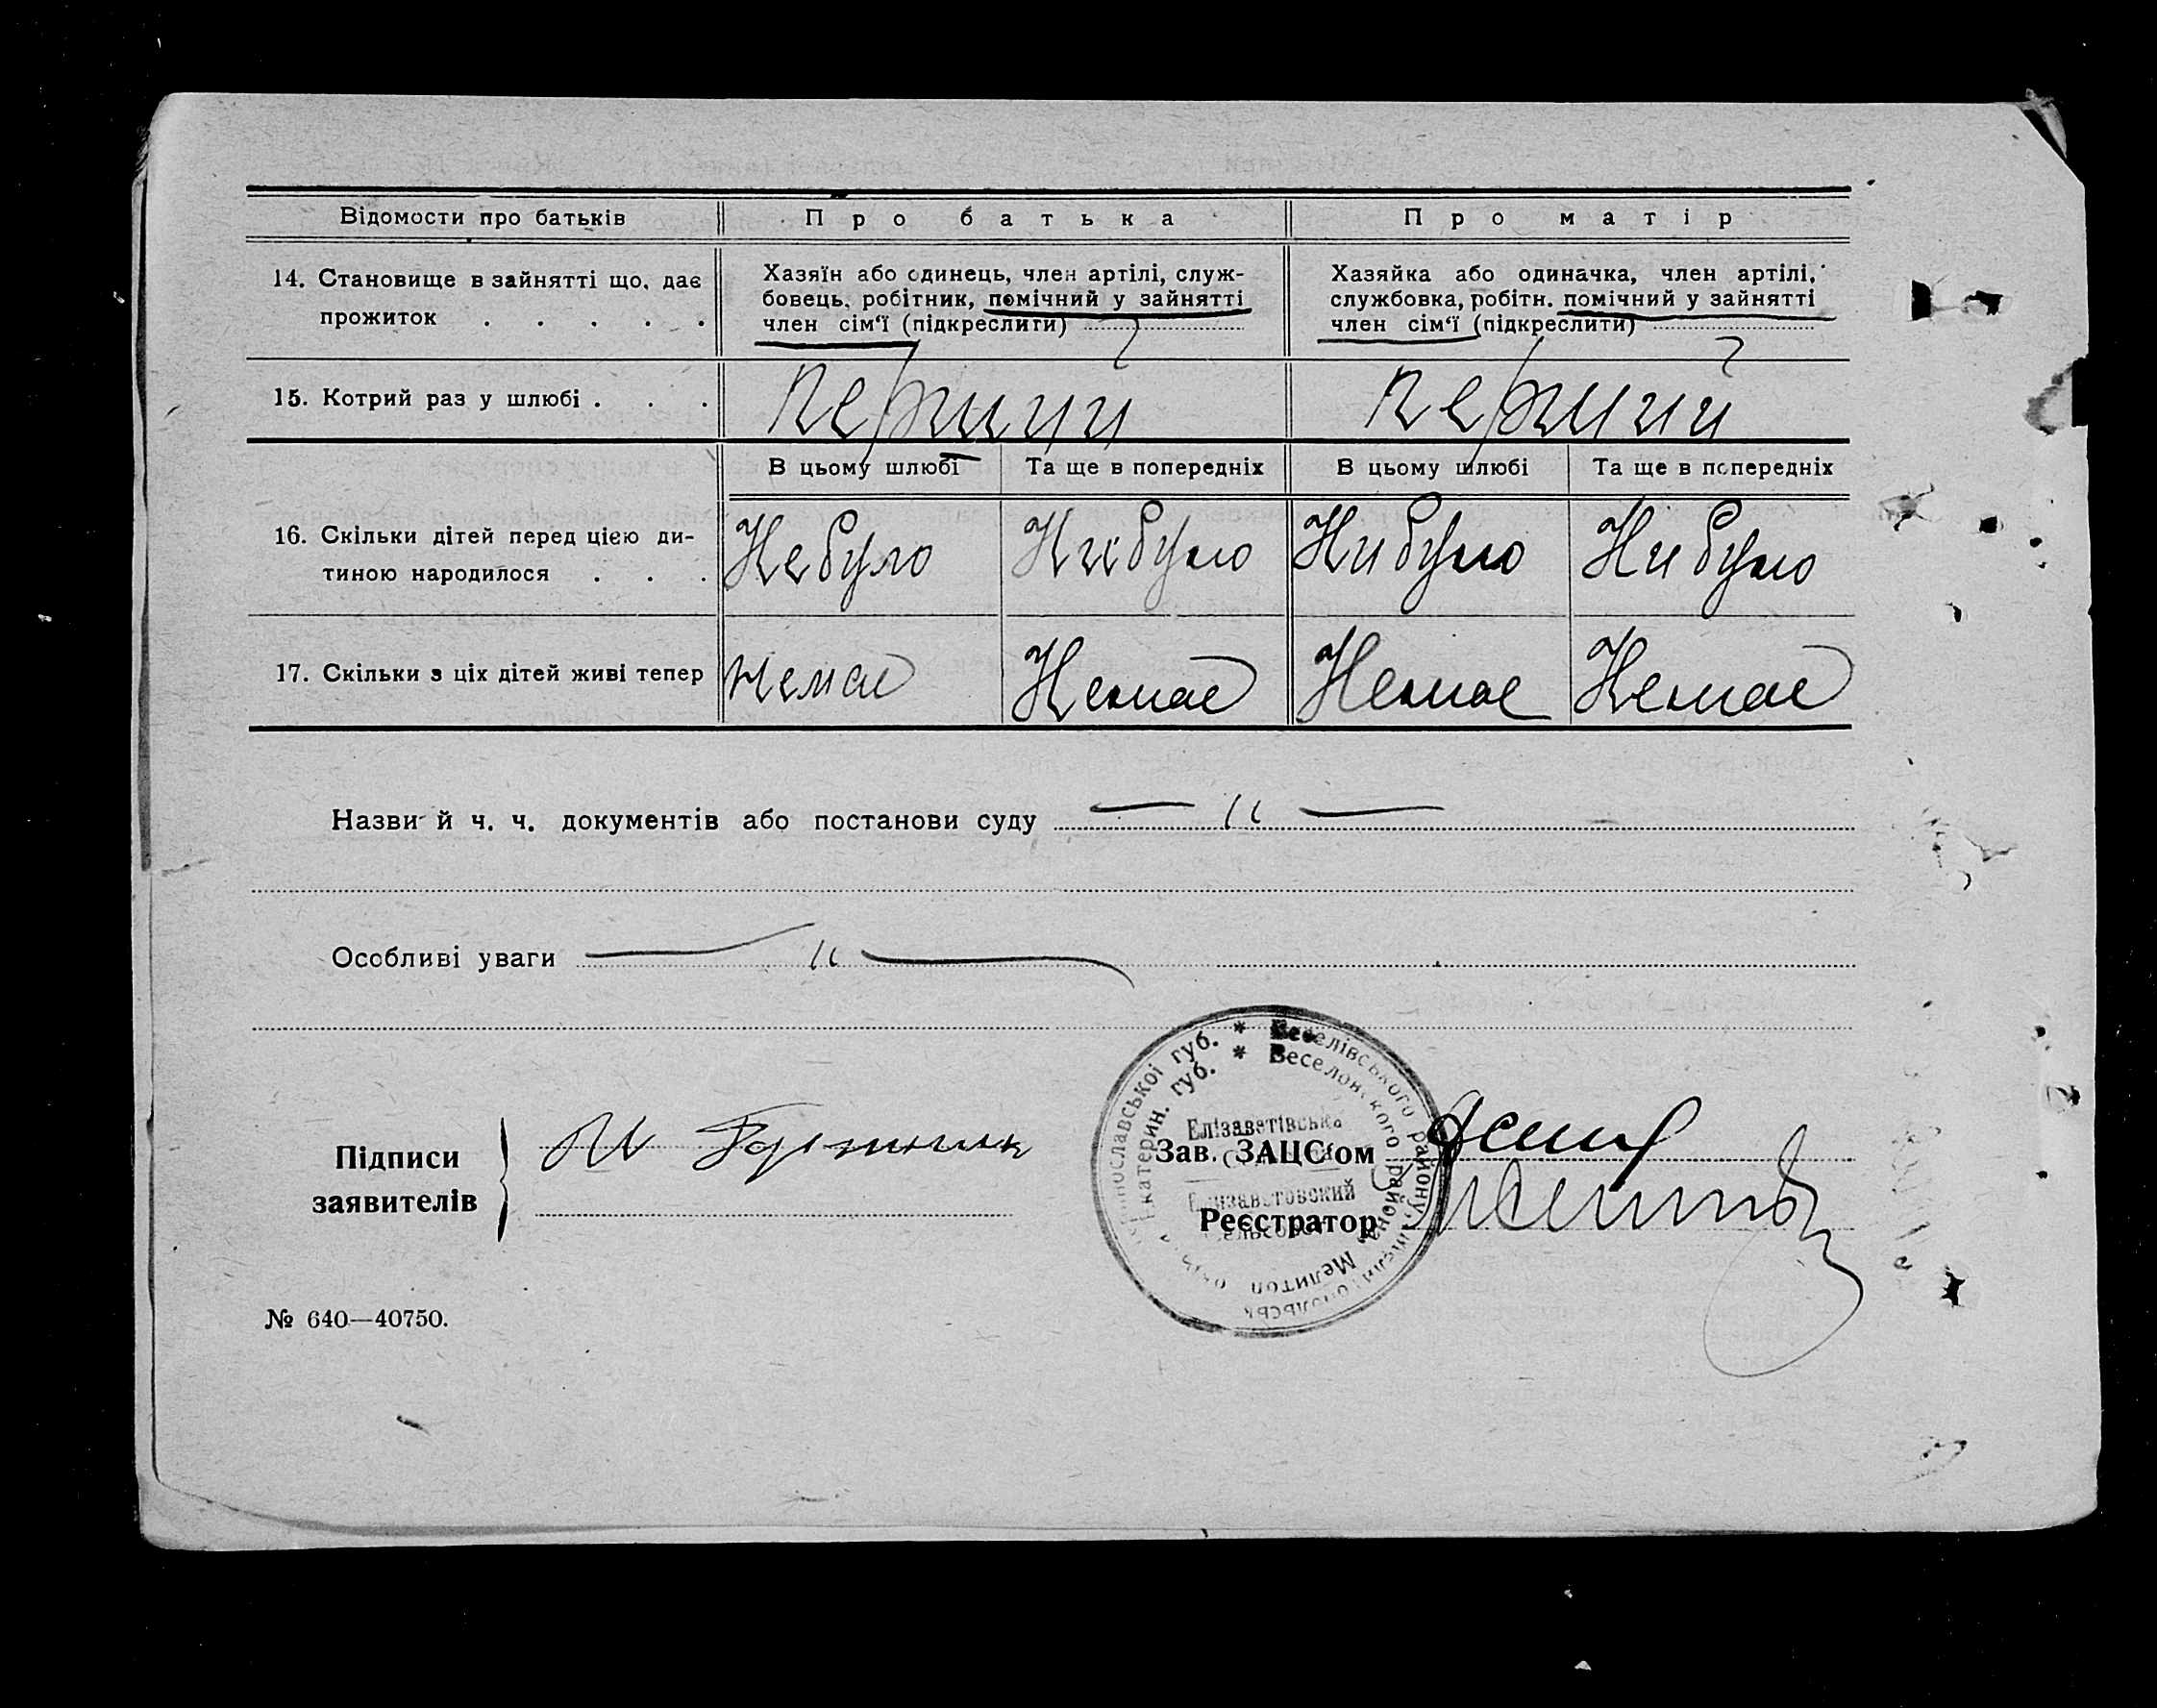 Відомости про батьків
Про батька
Про матір
14. Становище в зайнятті що, дає
прожиток . . . . .
Хазяїн або одинець, член артілі, служ-
бовець, робітник, помічний у зайнятті
член сім‘ї (підкреслити)
Хазяйка або одиначка, член артілі,
службовка, робітн. помічний у зайнятті
член сім‘ї (підкреслити)
15. Котрий раз у шлюбі . . .
перший
перший
В цьому шлюбі
Та ще в попередніх
В цьому шлюбі
Та ще в попередніх
16. Скільки дітей перед цією ди-
тиною народилося . . .
Небуло
Нибуло
Нибуло
Нибуло
17. Скільки з ціх дітей живі тепер
немає
Немає
Немає
Немає
Назви й ч. ч. документів або постанови суду — " —
Особливі уваги — " —
Підписи
заявителів
Зав. ЗАЦС‘ом
Реєстратор
* Веселівського району,
* Веселовского района, Мелитоп
Катеринославської губ.
Екатерин. губ.
Елізаветівська
Елизаветовский
сельсовет
№ 640—40750.